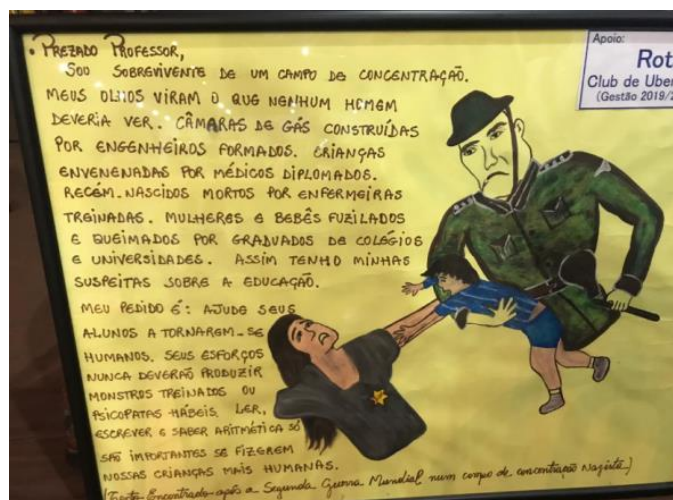 • PREZADO PROFESSOR,
SOU SOBREVIVENTE DE UM CAMPO DE CONCENTRAÇÃO.
MEUS OLHOS VIRAM O QUE NENHUM HOMEM
DEVERIA VER. CÂMARAS DE GÁS CONSTRUÍDAS
POR ENGENHEIROS FORMADOS. CRIANÇAS
ENVENENADAS POR MÉDICOS DIPLOMADOS.
RECÉM-NASCIDOS MORTOS POR ENFERMEIRAS
TREINADAS. MULHERES E BEBÊS FUZILADOS
E QUEIMADOS POR GRADUADOS DE COLÉGIOS
E UNIVERSIDADES. ASSIM TENHO MINHAS
SUSPEITAS SOBRE A EDUCAÇÃO.
MEU PEDIDO É: AJUDE SEUS
ALUNOS A TORNAREM-SE
HUMANOS. SEUS ESFORÇOS
NUNCA DEVERÃO PRODUZIR
MONSTROS TREINADOS OU
PSICOPATAS HÁBEIS. LER,
ESCREVER E SABER ARITMÉTICA SÓ
SÃO IMPORTANTES SE FIZEREM
NOSSAS CRIANÇAS MAIS HUMANAS.
(Texto Encontrado após a Segunda Guerra Mundial num campo de concentração Nazista)
Apoio:
Rot
Club de Uber
(Gestão 2019/2